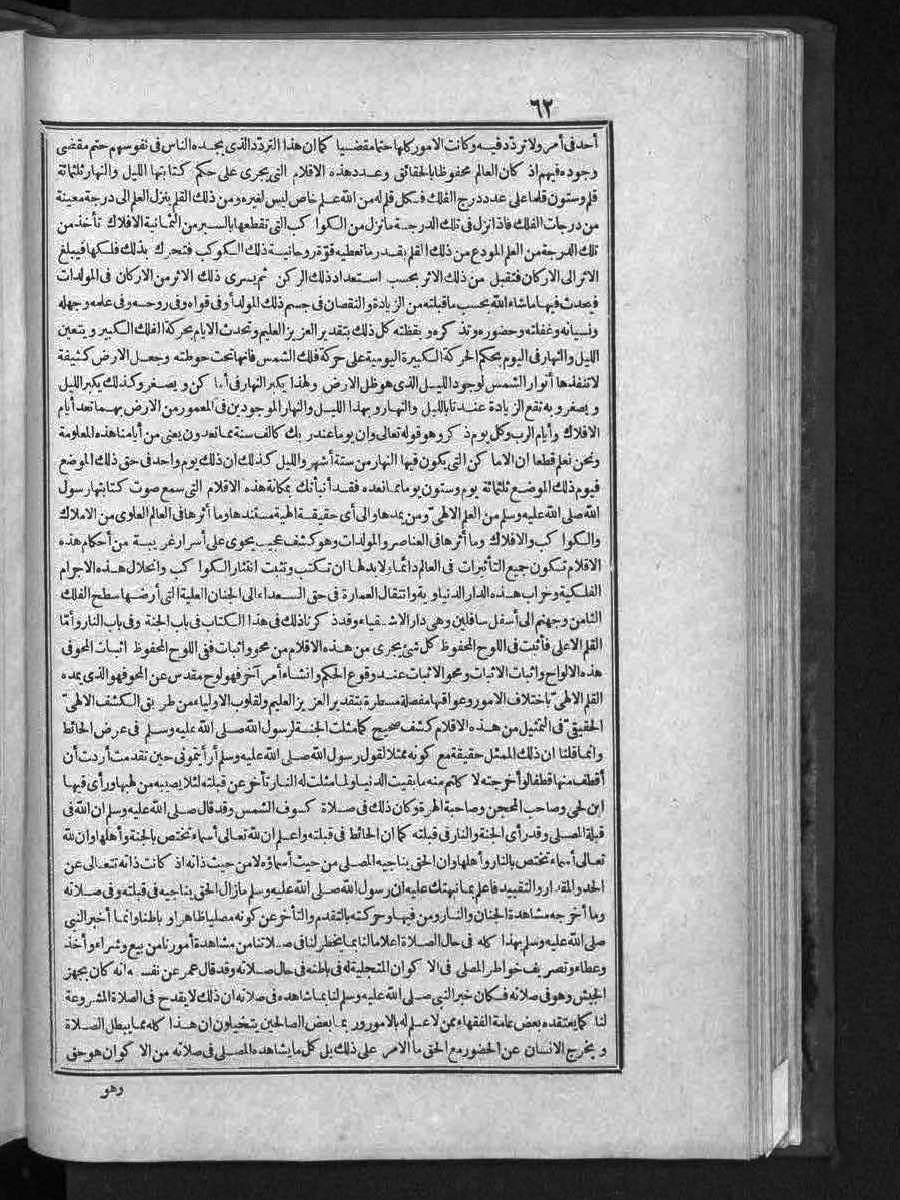 ٦٢
أحد فى أمر ولا تردد فيه وكانت الامور كلها حتما مقضيا كما ان هذا التردد الذى يجده الناس فى نفوسهم حتم مقضى
وجوده فيهم اذ كان العالم محفوظا بالحقائق وعدد هذه الاقلام التى يجرى على حكم كتابتها الليل والنهار ثلثمائة
قلم وستون قلما على عدد درج الفلك فكل قلم له من الله علم خاص ليس لغيره ومن ذلك القلم ينزل العلم الى درجة معينة
من درجات الفلك فاذا نزل فى تلك الدرجة ما نزل من الكواكب التى تقطعها بالسير من الثمانية الافلاك تأخذ من
تلك الدرجة من العلم المودع من ذلك القلم بقدر ما تعطيه قوّة روحانية ذلك الكوكب فتحرك بذلك فلكها فيبلغ
الاثر الى الاركان فتقبل من ذلك الاثر بحسب استعداد ذلك الركن ثم يسرى ذلك الاثر من الاركان فى المولدات
فيحدث فيها ما شاء الله بحسب ما قبلته من الزيادة والنقصان فى جسم ذلك المولد أو فى قواه وفى روحه وفى علمه وجهله
ونسيانه وغفلته وحضوره وتذكره ويقظته كل ذلك بتقدير العزيز العليم وتحدث الايام بحركة الفلك الكبير ويتعين
الليل والنهار فى اليوم بحكم الحركة الكبيرة اليومية على حركة فلك الشمس فانها تحت حوطته وجعل الارض كثيفة
لا تنفذها أنوار الشمس لوجود الليل الذى هو ظل الارض ولهذا يكبر النهار فى أماكن ويصغر وكذلك يكبر الليل
ويصغر وبه تقع الزيادة عندنا بالليل والنهار وبهذا الليل والنهار الموجودين فى المعمور من الارض بهما تعد أيام
الافلاك وأيام الرب وكل يوم ذكر وهو قوله تعالى وان يوما عند ربك كالف سنة مما تعدون يعنى من أيامنا هذه المعلومة
ونحن نعلم قطعا ان الاماكن التى يكون فيها النهار من ستة أشهر والليل كذلك ان ذلك يوم واحد فى حق ذلك الموضع
فيوم ذلك الموضع ثلثمائة يوم وستون يوما مما نعده فقد أنبأتك بمكانة هذه الاقلام التى سمع صوت كتابتها رسول
الله صلى الله عليه وسلم من العلم الالهىّ ومن يمدها والى أى حقيقة الهية مستندها وما أثرها فى العالم العلوى من الاملاك
والكواكب والافلاك وما أثرها فى العناصر والمولدات وهو كشف عجيب يحوى على أسرار غريبة من أحكام هذه
الاقلام تكون جميع التأثيرات فى العالم دائما ولا بد لها ان تكتب وتثبت انتثار الكواكب وانحلال هذه الاجرام
الفلكية وخراب هذه الدار الدنياوية وانتقال العمارة فى حق السعداء الى الجنان العلية التى أرضها سطح الفلك
الثامن وجهنم الى أسفل سافلين وهى دار الاشقياء وقد ذكرنا ذلك فى هذا الكتاب فى باب الجنة وفى باب النار وأمّا
القلم الاعلى فأثبت فى اللوح المحفوظ كل شئ يجرى من هذه الاقلام من محو واثبات ففى اللوح المحفوظ اثبات المحو فى
هذه الالواح واثبات الاثبات ومحو الاثبات عند وقوع الحكم وانشاء أمر آخر فهو لوح مقدس عن المحو فهو الذى يمده
القلم الالهىّ باختلاف الامور وعواقبها مفصلة مسطرة بتقدير العزيز العليم ولقلوب الاولياء من طريق الكشف الالهىّ
الحقيقىّ فى التمثيل من هذه الاقلام كشف صحيح كما مثلت الجنة لرسول الله صلى الله عليه وسلم فى عرض الحائط
وانما قلنا ان ذلك الممثل حقيقة مع كونه ممثلا لقول رسول الله صلى الله عليه وسلم أرأيتمونى حين تقدمت أردت أن
أقطف منها قطفا لو أخرجته لأكلتم منه ما بقيت الدنيا ولما مثلت له النار تأخر عن قبلته لئلا يصيبه من لهبها ورأى فيها
ابن لحى وصاحب المحجن وصاحبة الهرة وكان ذلك فى صلاة كسوف الشمس وقد قال صلى الله عليه وسلم ان الله فى
قبلة المصلى وقد رأى الجنة والنار فى قبلته كما ان الحائط فى قبلته واعلم ان لله تعالى أسماء تختص بالجنة وأهلها وان لله
تعالى أسماء تختص بالنار وأهلها وان الحق يناجيه المصلى من حيث أسماؤه لا من حيث ذاته اذ كانت ذاته تتعالى عن
الحد والمقدار والتقييد فاعلم بما نبهتك عليه ان رسول الله صلى الله عليه وسلم ما زال الحق يناجيه فى قبلته وفى صلاته
وما أخرجه مشاهدة الجنان والنار ومن فيها وحركته بالتقدم والتأخر عن كونه مصليا ظاهرا وباطنا وانما أخبر النبى
صلى الله عليه وسلم بهذا كله فى حال الصلاة اعلاما لنا بما يخطر لنا فى صلاتنا من مشاهدة أمورنا من بيع وشراء وأخذ
وعطاء وتصريف خواطر المصلى فى الاكوان المتجلية له فى باطنه فى حال صلاته وقد قال عمر عن نفسه انه كان يجهز
الجيش وهو فى صلاته فكان خبر النبى صلى الله عليه وسلم لنا بما شاهده فى صلاته ان ذلك لا يقدح فى الصلاة المشروعة
لنا كما يعتقده بعض عامة الفقهاء ممن لا علم له بالامور وربما بعض الصالحين يتخيلون ان هذا كله مما يبطل الصلاة
ويخرج الانسان عن الحضور مع الحق ما الامر على ذلك بل كل ما يشاهده المصلى فى صلاته من الاكوان هو حق
وهو